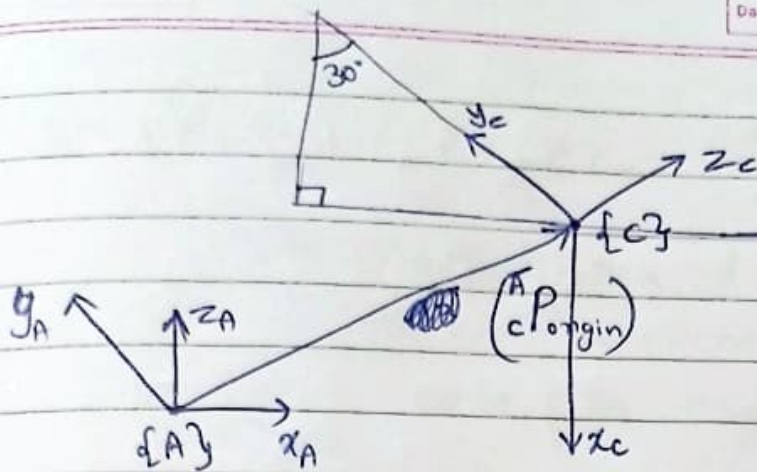 Da
30°
y_c
z_c
{C}
(^A_C P_origin)
y_A
z_A
{A}
x_A
x_C